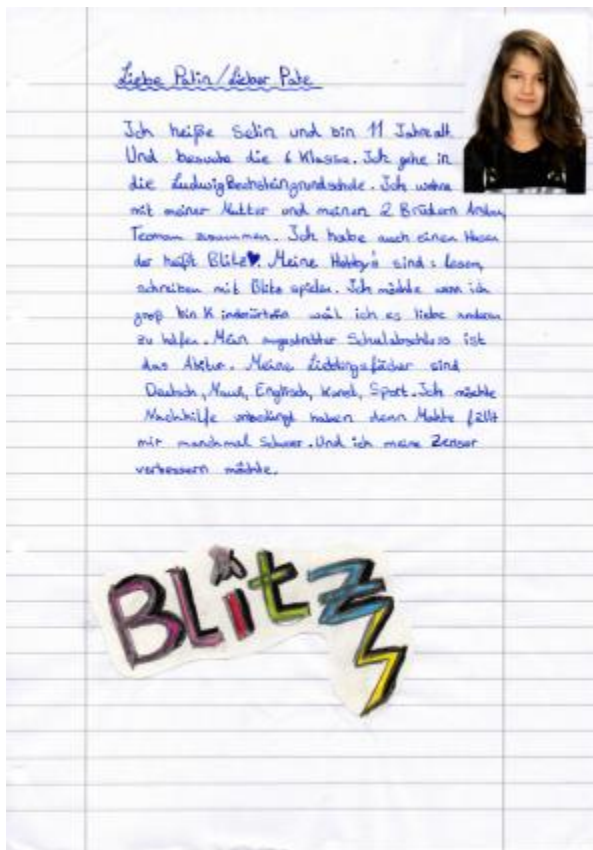 Liebe Patin/Lieber Pate
Ich heiße Selin und bin 11 Jahre alt.
Und besuche die 6 Klasse. Ich gehe in
die Ludwig Bechsteingrundschule. Ich wohne
mit meiner Mutter und meinen 2 Brüdern
Teoman zusammen. Ich habe auch einen Hasen
der heißt Blitz♥. Meine Hobby's sind: lesen,
schreiben mit Blitz spielen. Ich möchte wenn ich
groß bin Kinderärtztin weil ich es liebe anderen
zu helfen. Mein angestrebter Schulabschluss ist
das Abitur. Meine Lieblingsfächer sind
Deutsch, Nawi, Englisch, Kunst, Sport. Ich möchte
Nachhilfe unbedingt haben denn Mathe fällt
mir manchmal Schwer. Und ich meine Zensur
verbessern möchte.
BLitz